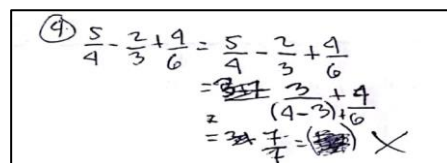 ④ 5/4 - 2/3 + 4/6 = 5/4 - 2/3 + 4/6
= 3/(4-3) + 4/+6
= 7/7 = ✗